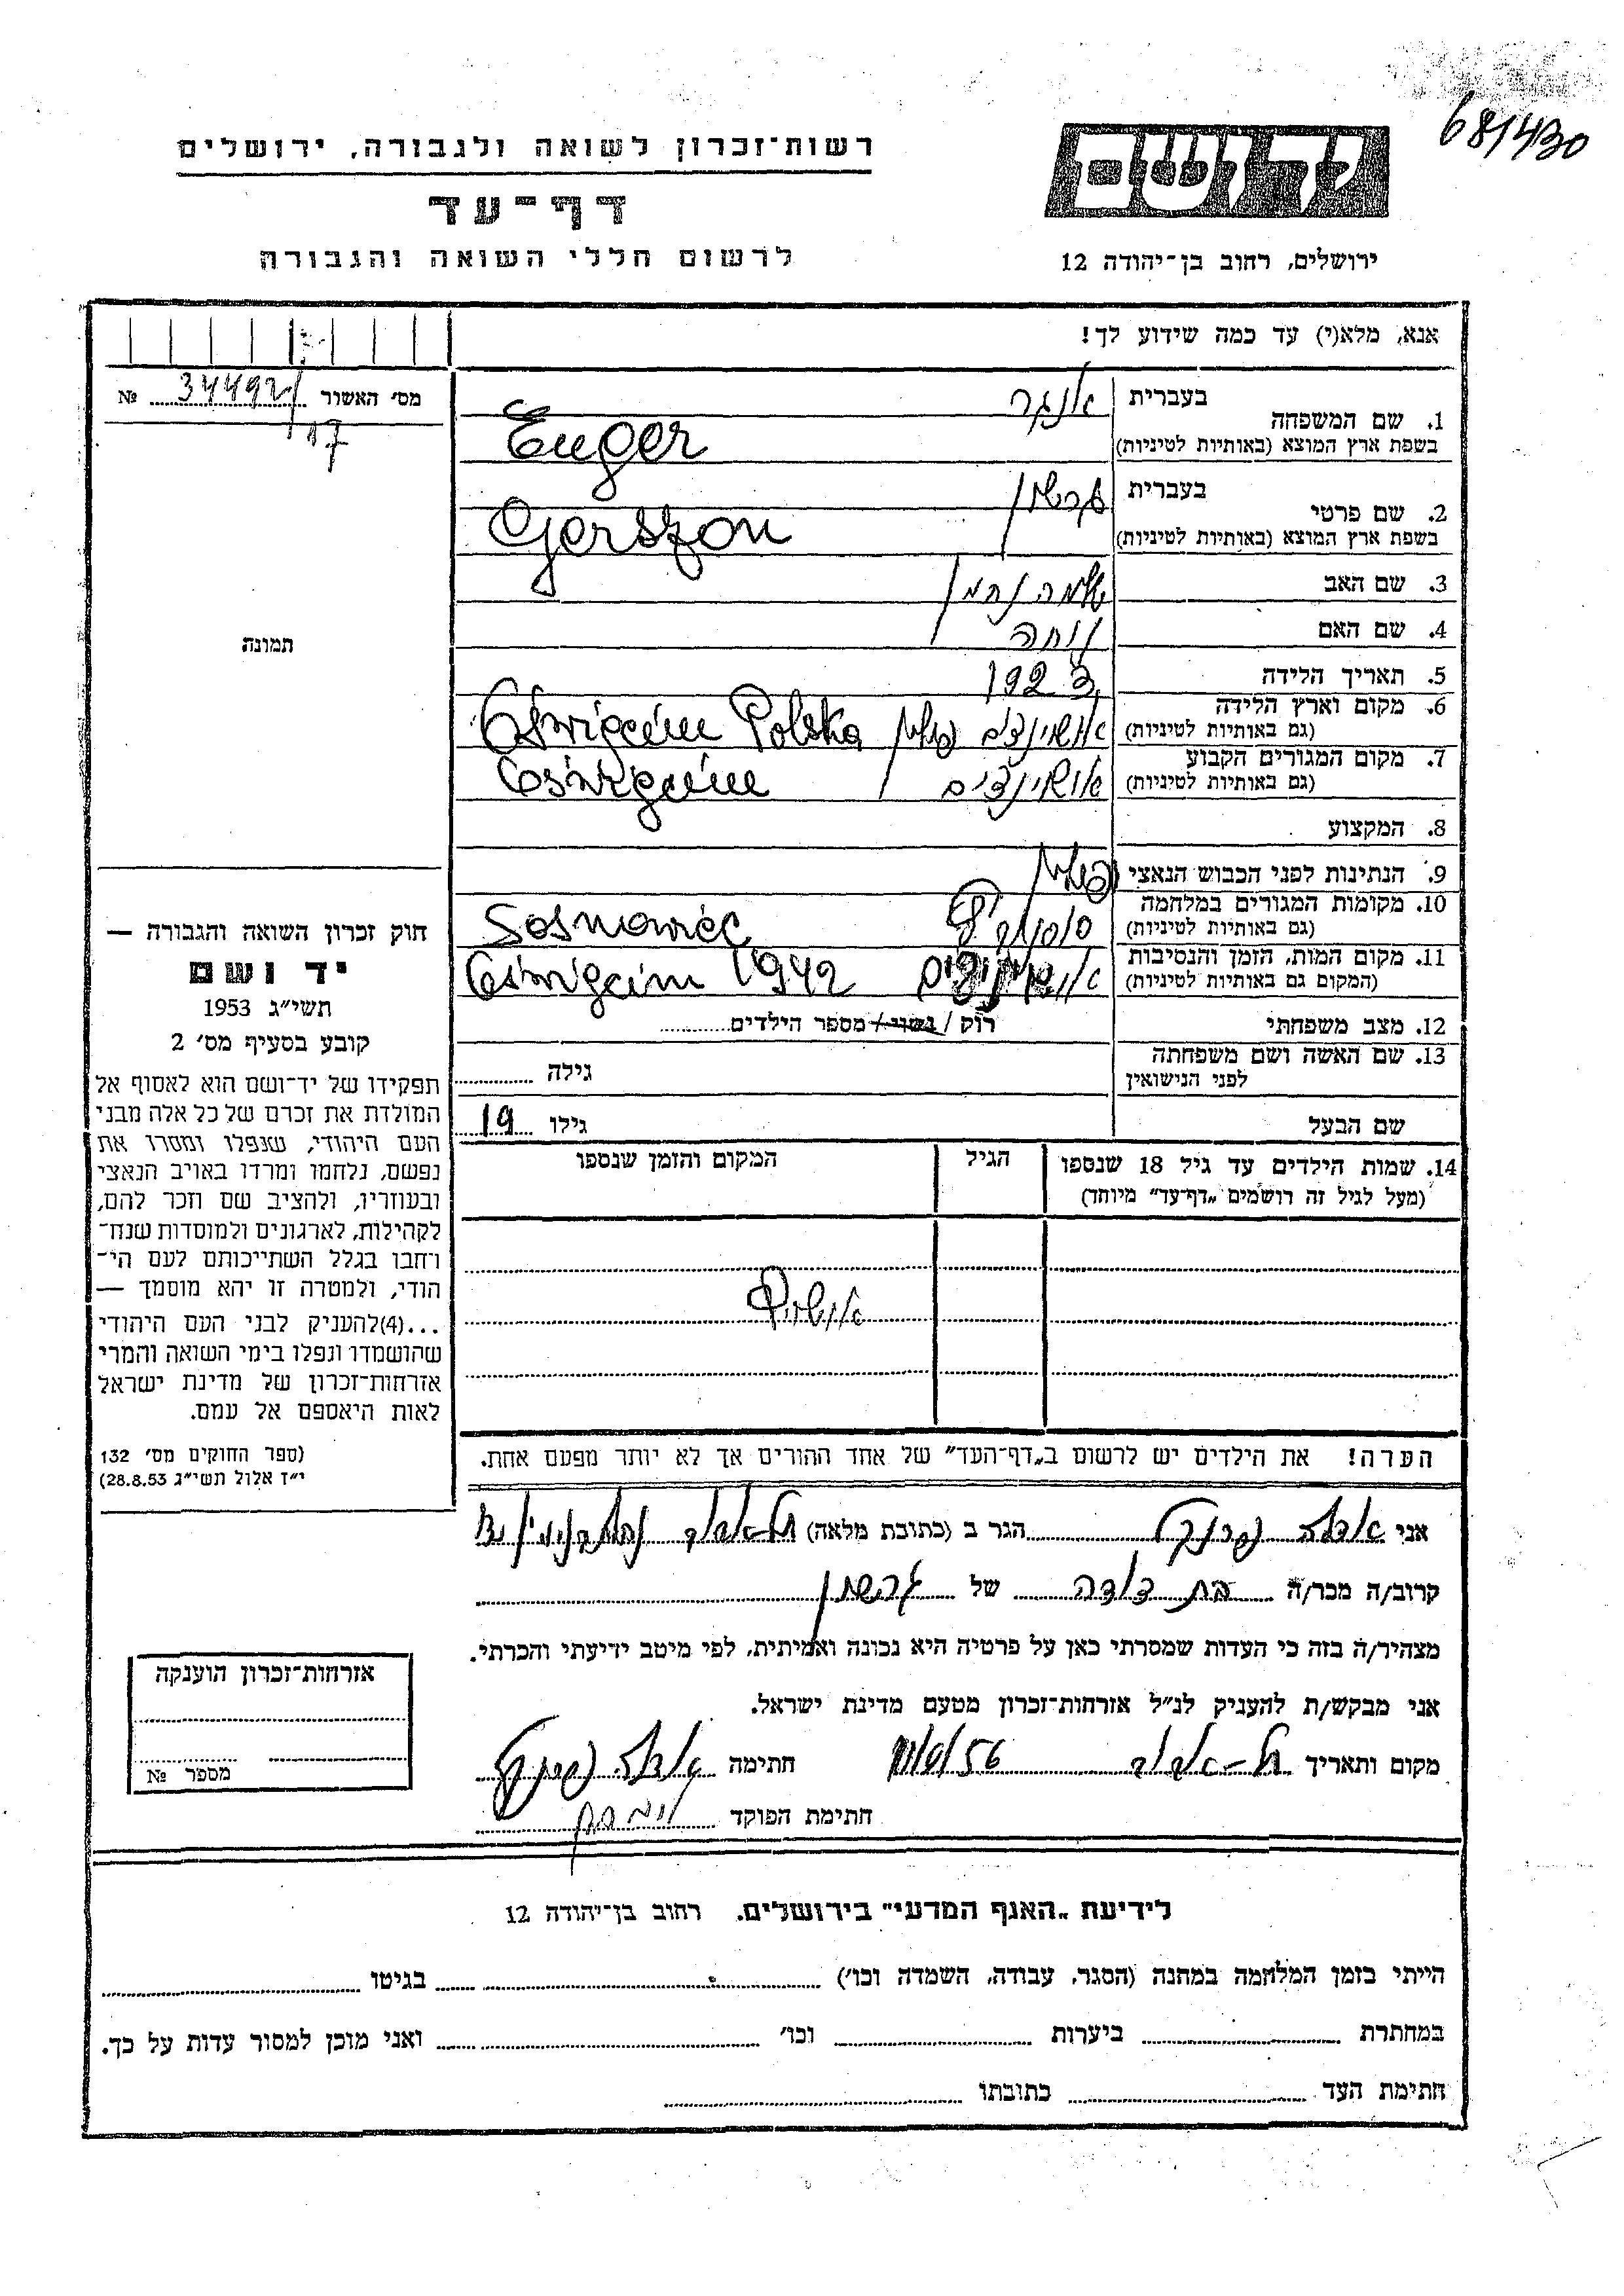 681430
רשות־זכרון לשואה ולגבורה, ירושלים
יד ושם
דף־עד
לרשום חללי השואה והגבורה
ירושלים, רחוב בן־יהודה 12
אנא, מלא(י) עד כמה שידוע לך!
מס׳ האשור 344921 №
17
תמונה
1. שם המשפחה
בעברית אנגר
בשפת ארץ המוצא (באותיות לטיניות) Enger
2. שם פרטי
בעברית גרשון
בשפת ארץ המוצא (באותיות לטיניות) Gerszon
3. שם האב שלמה נחמן
4. שם האם
5. תאריך הלידה 1923
6. מקום וארץ הלידה
(גם באותיות לטיניות) אושוינצים פולין Oświęcim Polska
7. מקום המגורים הקבוע
(גם באותיות לטיניות) אושוינצים Oświęcim
8. המקצוע
9. הנתינות לפני הכבוש הנאצי פולין
10. מקומות המגורים במלחמה
(גם באותיות לטיניות) Sosnowiec
11. מקום המות, הזמן והנסיבות
(המקום גם באותיות לטיניות) Oświęcim 1942
12. מצב משפחתי רוק / נשוי / מספר הילדים
13. שם האשה ושם משפחתה
לפני הנישואין גילה
שם הבעל גילו 19
14. שמות הילדים עד גיל 18 שנספו הגיל המקום והזמן שנספו
(מעל לגיל זה רושמים „דף־עד" מיוחד)
הערה! את הילדים יש לרשום ב„דף־העד" של אחד ההורים אך לא יותר מפעם אחת.
חוק זכרון השואה והגבורה —
יד ושם
תשי״ג 1953
קובע בסעיף מס׳ 2
תפקידו של יד־ושם הוא לאסוף אל
המולדת את זכרם של כל אלה מבני
העם היהודי, שנפלו ומסרו את
נפשם, נלחמו ומרדו באויב הנאצי
ובעוזריו, ולהציב שם וזכר להם,
לקהילות, לארגונים ולמוסדות שנח־
רחבו בגלל השתייכותם לעם הי־
הודי, ולמטרה זו יהא מוסמך —
...(4)להעניק לבני העם היהודי
שהושמדו ונפלו בימי השואה והמרי
אזרחות־זכרון של מדינת ישראל
לאות היאספם אל עמם.
(ספר החוקים מס׳ 132
י״ז אלול תשי״ג 28.8.53)
אני הגר ב (כתובת מלאה) תל־אביב
קרוב/ה מכר/ה בת דודה של גרשון
מצהיר/ה בזה כי העדות שמסרתי כאן על פרטיה היא נכונה ואמיתית, לפי מיטב ידיעתי והכרתי.
אני מבקש/ת להעניק לנ״ל אזרחות־זכרון מטעם מדינת ישראל.
מקום ותאריך תל־אביב חתימה
חתימת הפוקד
אזרחות־זכרון הוענקה
מספר №
לידיעת „האגף המדעי" בירושלים. רחוב בן־יהודה 12
הייתי בזמן המלחמה במחנה (הסגר, עבודה, השמדה וכו׳) בגיטו
במחתרת ביערות וכו׳ ואני מוכן למסור עדות על כך.
חתימת העד כתובתו